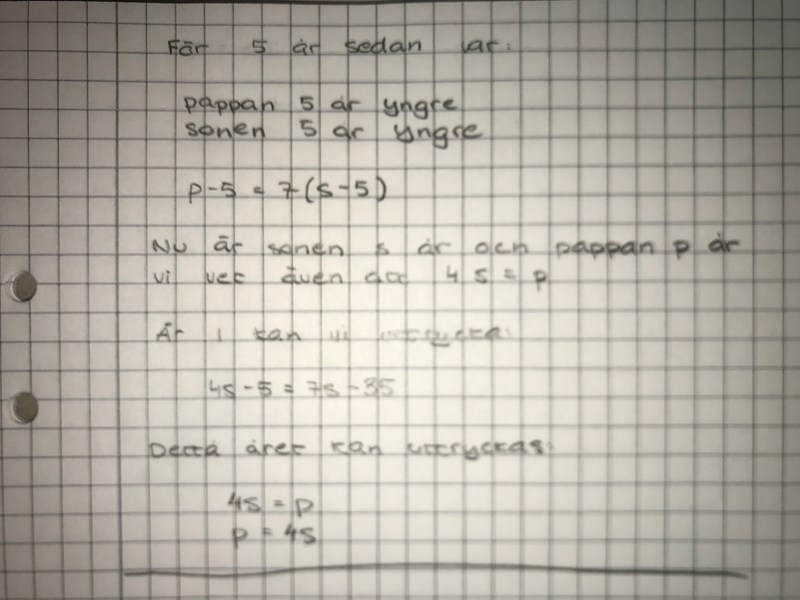 För 5 år sedan var:
pappan 5 år yngre
sonen 5 år yngre
p-5 = 7(s-5)
Nu är sonen s år och pappan p år
vi vet även att 4s = p
År 1 kan vi uttrycka:
4s-5 = 7s-35
Detta året kan uttryckas:
4s = p
p = 4s